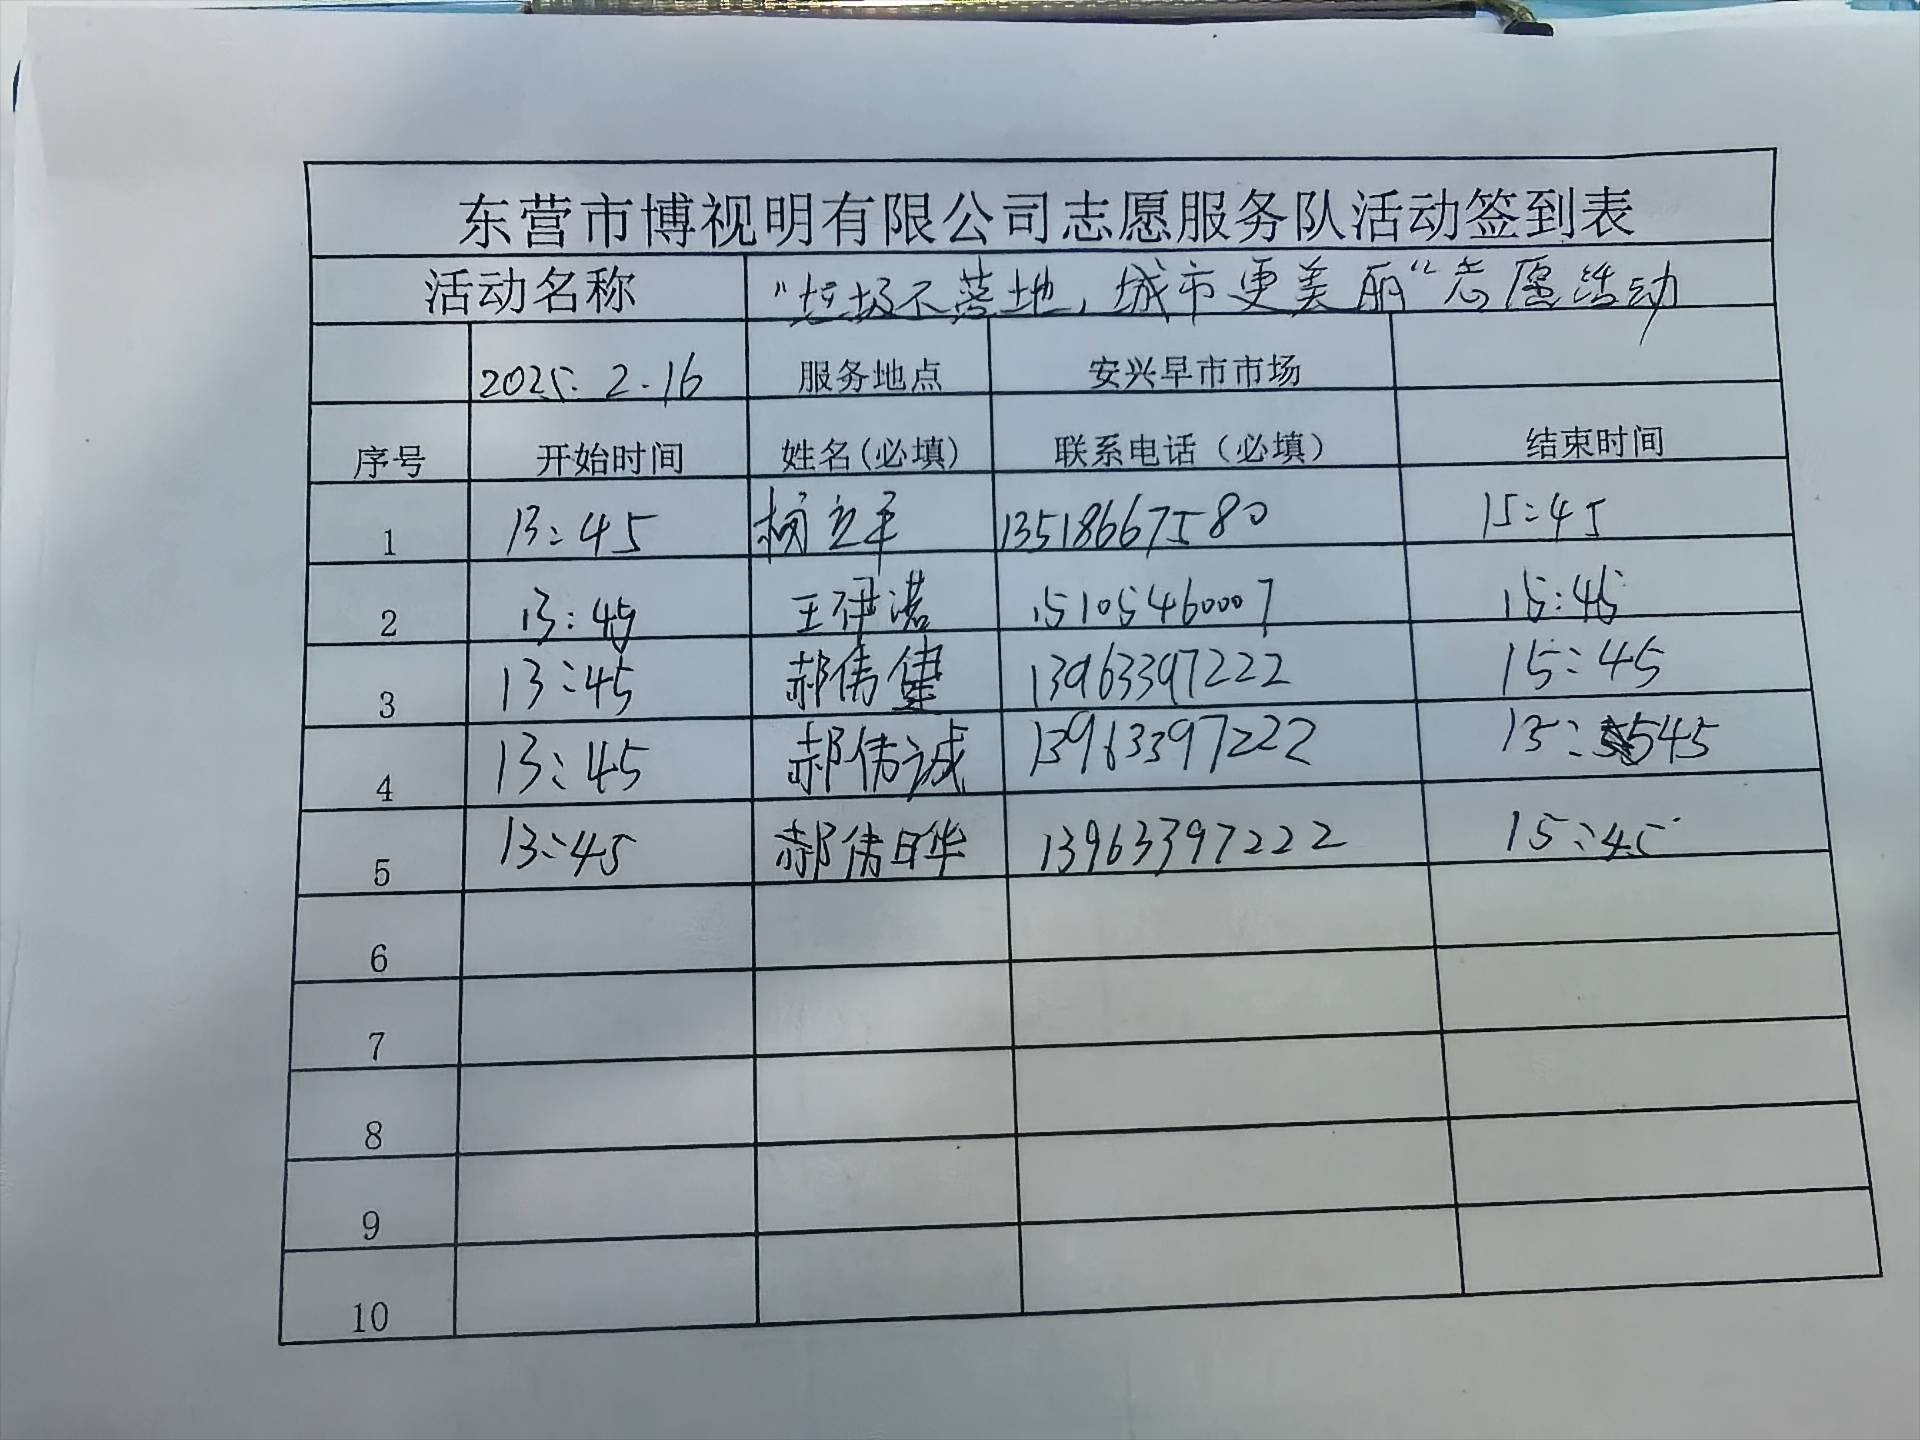 东营市博视明有限公司志愿服务队活动签到表
活动名称 "垃圾不落地,城市更美丽"志愿活动
2025.2.16 服务地点 安兴早市市场
序号 开始时间 姓名(必填) 联系电话（必填） 结束时间
1 13:45 立军 13518667580 15:45
2 13:45 王伊诺 15105460007 15:45
3 13:45 郝倩健 13963397222 15:45
4 13:45 郝倩诚 13963397222 15:545
5 13:45 郝倩晔 13963397222 15:45
6
7
8
9
10